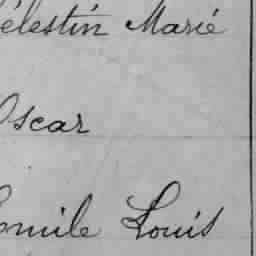 Célestin Marie
Oscar
Emile Louis